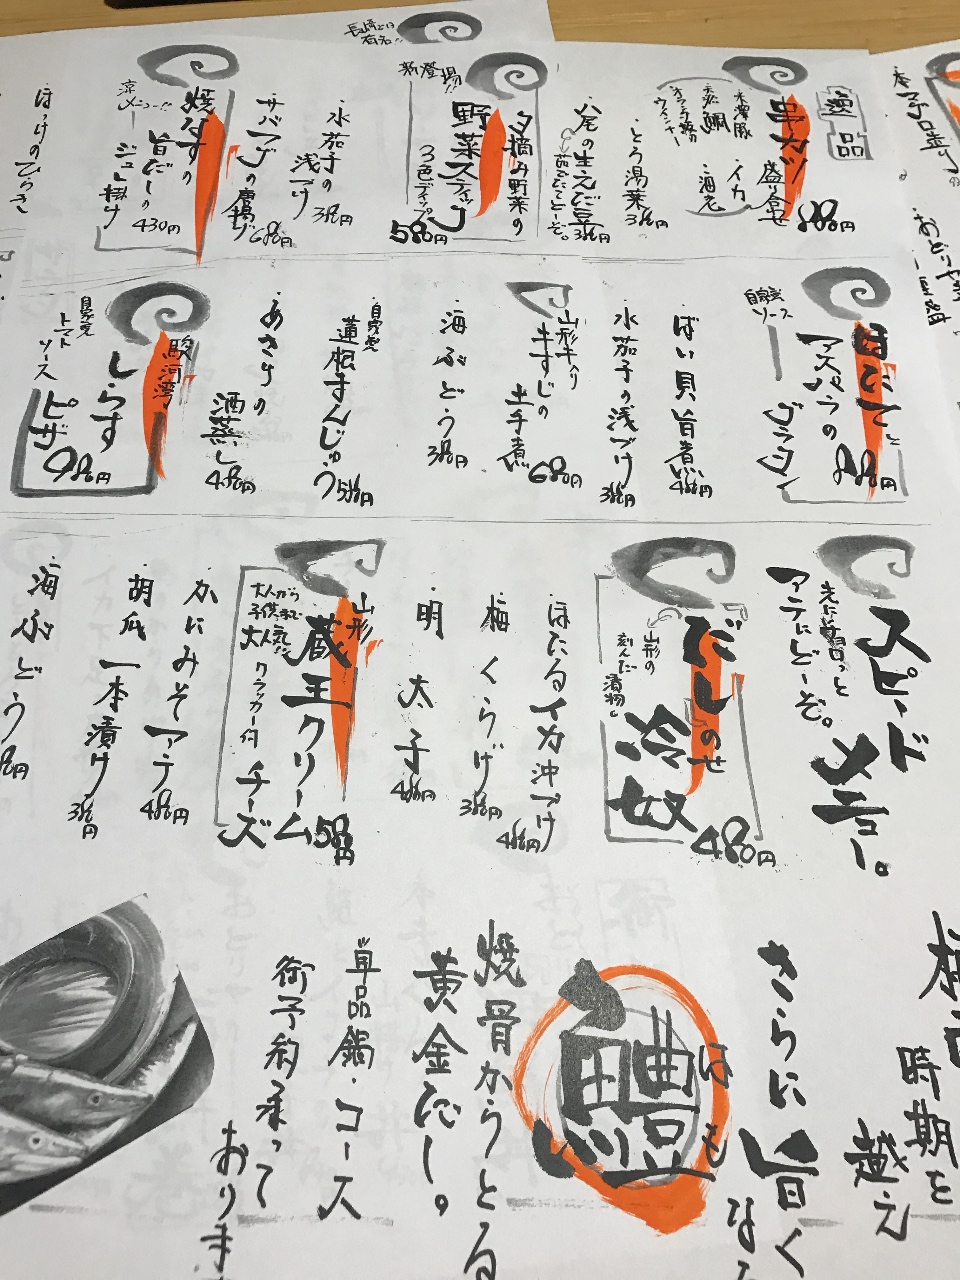 長崎では
有名!!
逸品
串カツ
盛り合せ
880円
とろ湯葉 380円
八尾の生えだ豆 380円
夕摘み野菜の
野菜スティック
3色ディップ
580円
新登場!!
水茄子の
浅づけ
380円
サバフグの唐揚げ
680円
焼なすの
旨だしの
ジュレ掛け
430円
京メニュー!!
ほっけのひらき
ほたてと
アスパラの
グラタン
880円
自家製
ソース
ばい貝旨煮 480円
水茄子の浅づけ 380円
山形牛入り
牛すじの
土手煮
680円
海ぶどう 380円
自家製
蓮根まんじゅう 580円
あさりの
酒蒸し
480円
駿河湾
しらす
ピザ
980円
自家製
トマト
ソース
スピードメニュー。
アテにどーぞ。
だしのせ
冷奴
480円
山形の
刻んだ
漬物
ほたるイカ沖づけ 480円
梅くらげ 380円
明太子 480円
山形
蔵王クリーム
チーズ
580円
クラッカー付
大人から
子供まで
大人気!!
かにみそアテ 480円
胡瓜一本漬け 380円
海ぶどう
時期を
越え
さらに旨く
なる
はも
鱧
焼骨からとる
黄金だし。
単品鍋・コース
御予約承って
おりま